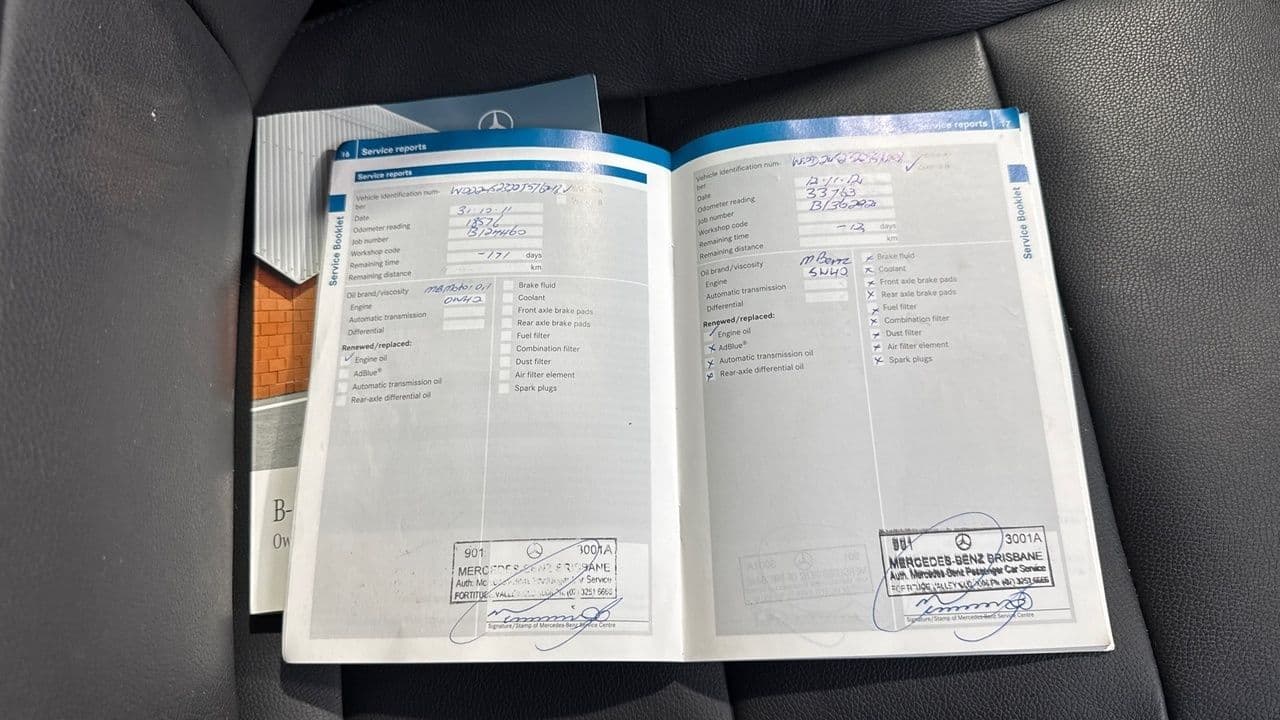 16 Service reports
Service reports
Service Booklet
Vehicle identification num-
ber
Date 31-10-11
Odometer reading
Job number B124460
Workshop code
Remaining time -171 days
Remaining distance km
Oil brand/viscosity MB Motor Oil
Engine OW40
Automatic transmission
Differential
Renewed/replaced:
Engine oil
AdBlue®
Automatic transmission oil
Rear-axle differential oil
Brake fluid
Coolant
Front axle brake pads
Rear axle brake pads
Fuel filter
Combination filter
Dust filter
Air filter element
Spark plugs
901 3001A
MERCEDES-BENZ BRISBANE
Auth. Service
FORTITUDE VALLEY (07) 3251 6666
Signature/Stamp of Mercedes-Benz Service Centre
B-
Ow
Service reports 17
Service Booklet
Vehicle identification num-
ber
Date 12-11-12
Odometer reading 33763
Job number
Workshop code
Remaining time -12 days
Remaining distance km
Oil brand/viscosity M Benz
Engine 5W40
Automatic transmission
Differential
Renewed/replaced:
Engine oil
AdBlue®
Automatic transmission oil
Rear-axle differential oil
Brake fluid
Coolant
Front axle brake pads
Rear axle brake pads
Fuel filter
Combination filter
Dust filter
Air filter element
Spark plugs
901 3001A
MERCEDES-BENZ BRISBANE
Auth. Mercedes-Benz Passenger Car Service
FORTITUDE VALLEY QLD 4006 Ph: (07) 3251 6666
Signature/Stamp of Mercedes-Benz Service Centre